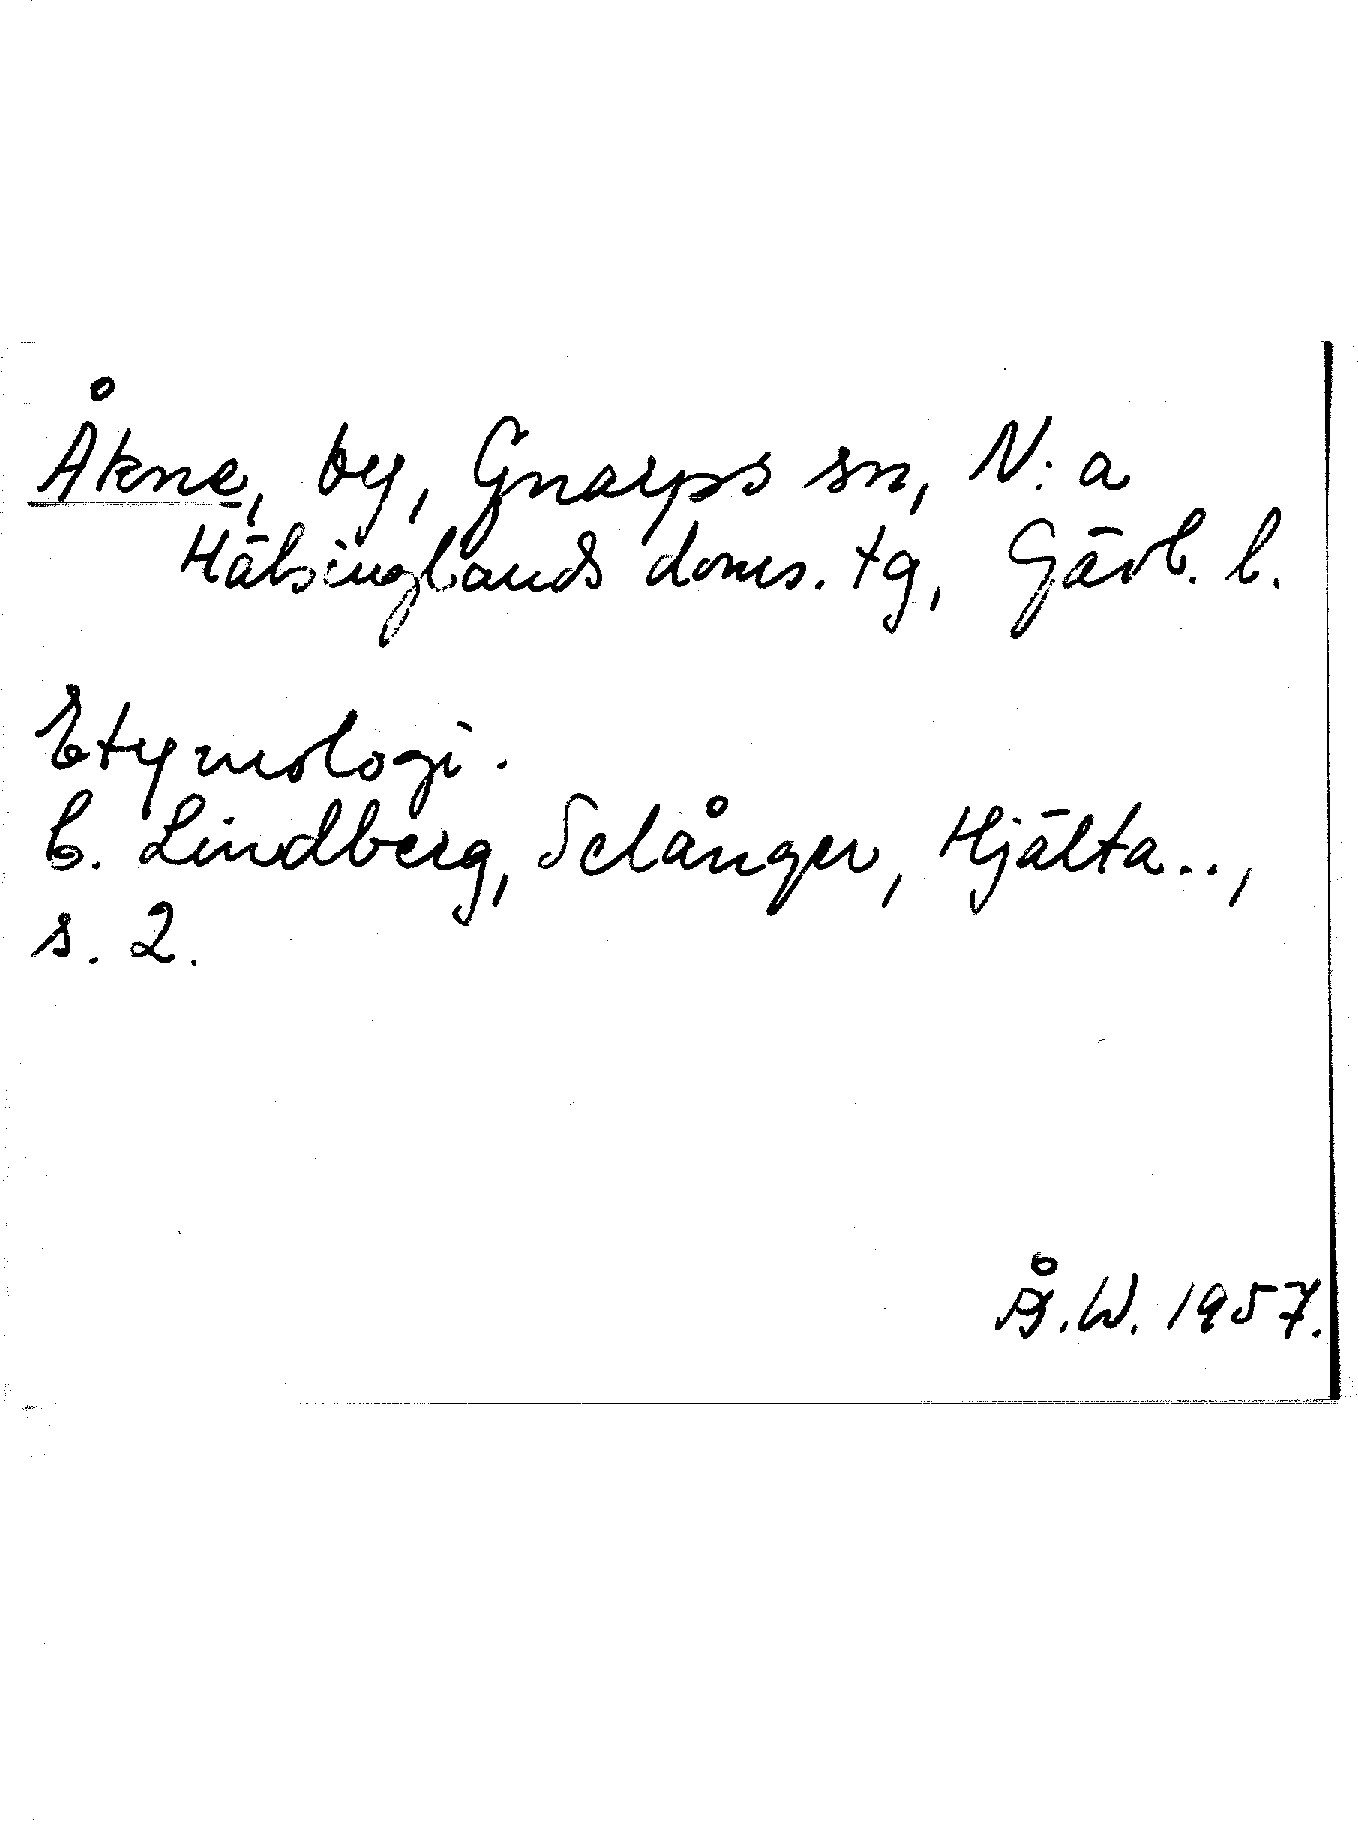 Åkne, by, Gnarps sn, N:a
Hälsinglands doms. tg, Gävl. l.
Etymologi.
C. Lindberg, Selånger, Hjälta..,
s. 2.
Å.W. 1957.